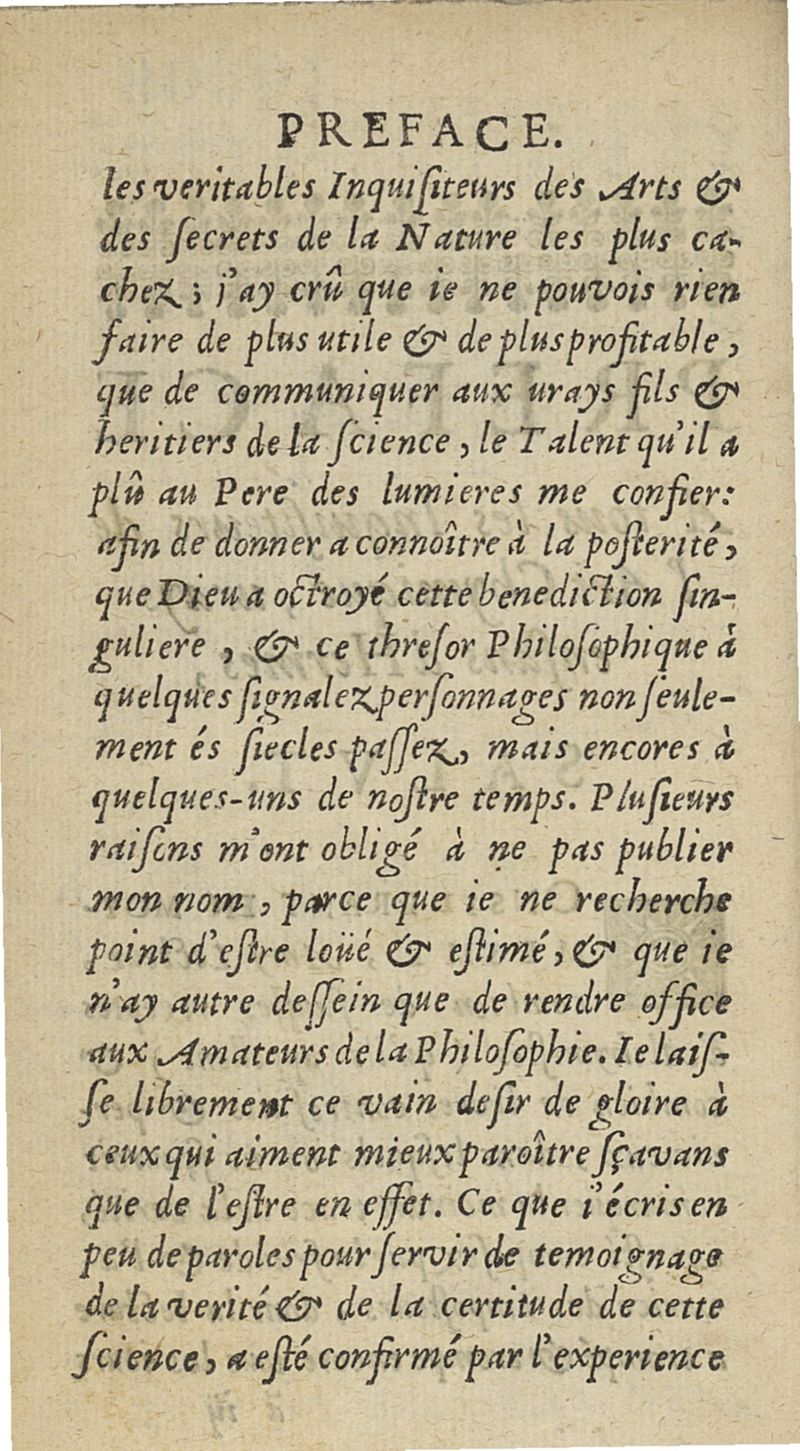 PREFACE.
les veritables Inquiſiteurs des Arts &
des ſecrets de la Nature les plus ca-
chez; j'ay crû que ie ne pouvois rien
faire de plus utile & de plus profitable,
que de communiquer aux urays fils &
heritiers de la ſcience, le Talent qu'il a
plû au Pere des lumieres me confier:
afin de donner a connoître à la poſterité,
que Dieu a octroyé cette benediction ſin-
guliere, & ce threſor Philoſophique à
quelques ſignalez perſonnages non ſeule-
ment és ſiecles paſſez, mais encores à
quelques-uns de noſtre temps. Pluſieurs
raiſons m'ont obligé à ne pas publier
mon nom, parce que ie ne recherche
point d'eſtre loüé & eſtimé, & que ie
n'ay autre deſſein que de rendre office
aux Amateurs de la Philoſophie. Ie laiſ-
ſe librement ce vain deſir de gloire à
ceux qui aiment mieux paroître ſçavans
que de l'eſtre en effet. Ce que i'écris en
peu de paroles pour ſervir de temoignage
de la verité & de la certitude de cette
ſcience, a eſté confirmé par l'experience